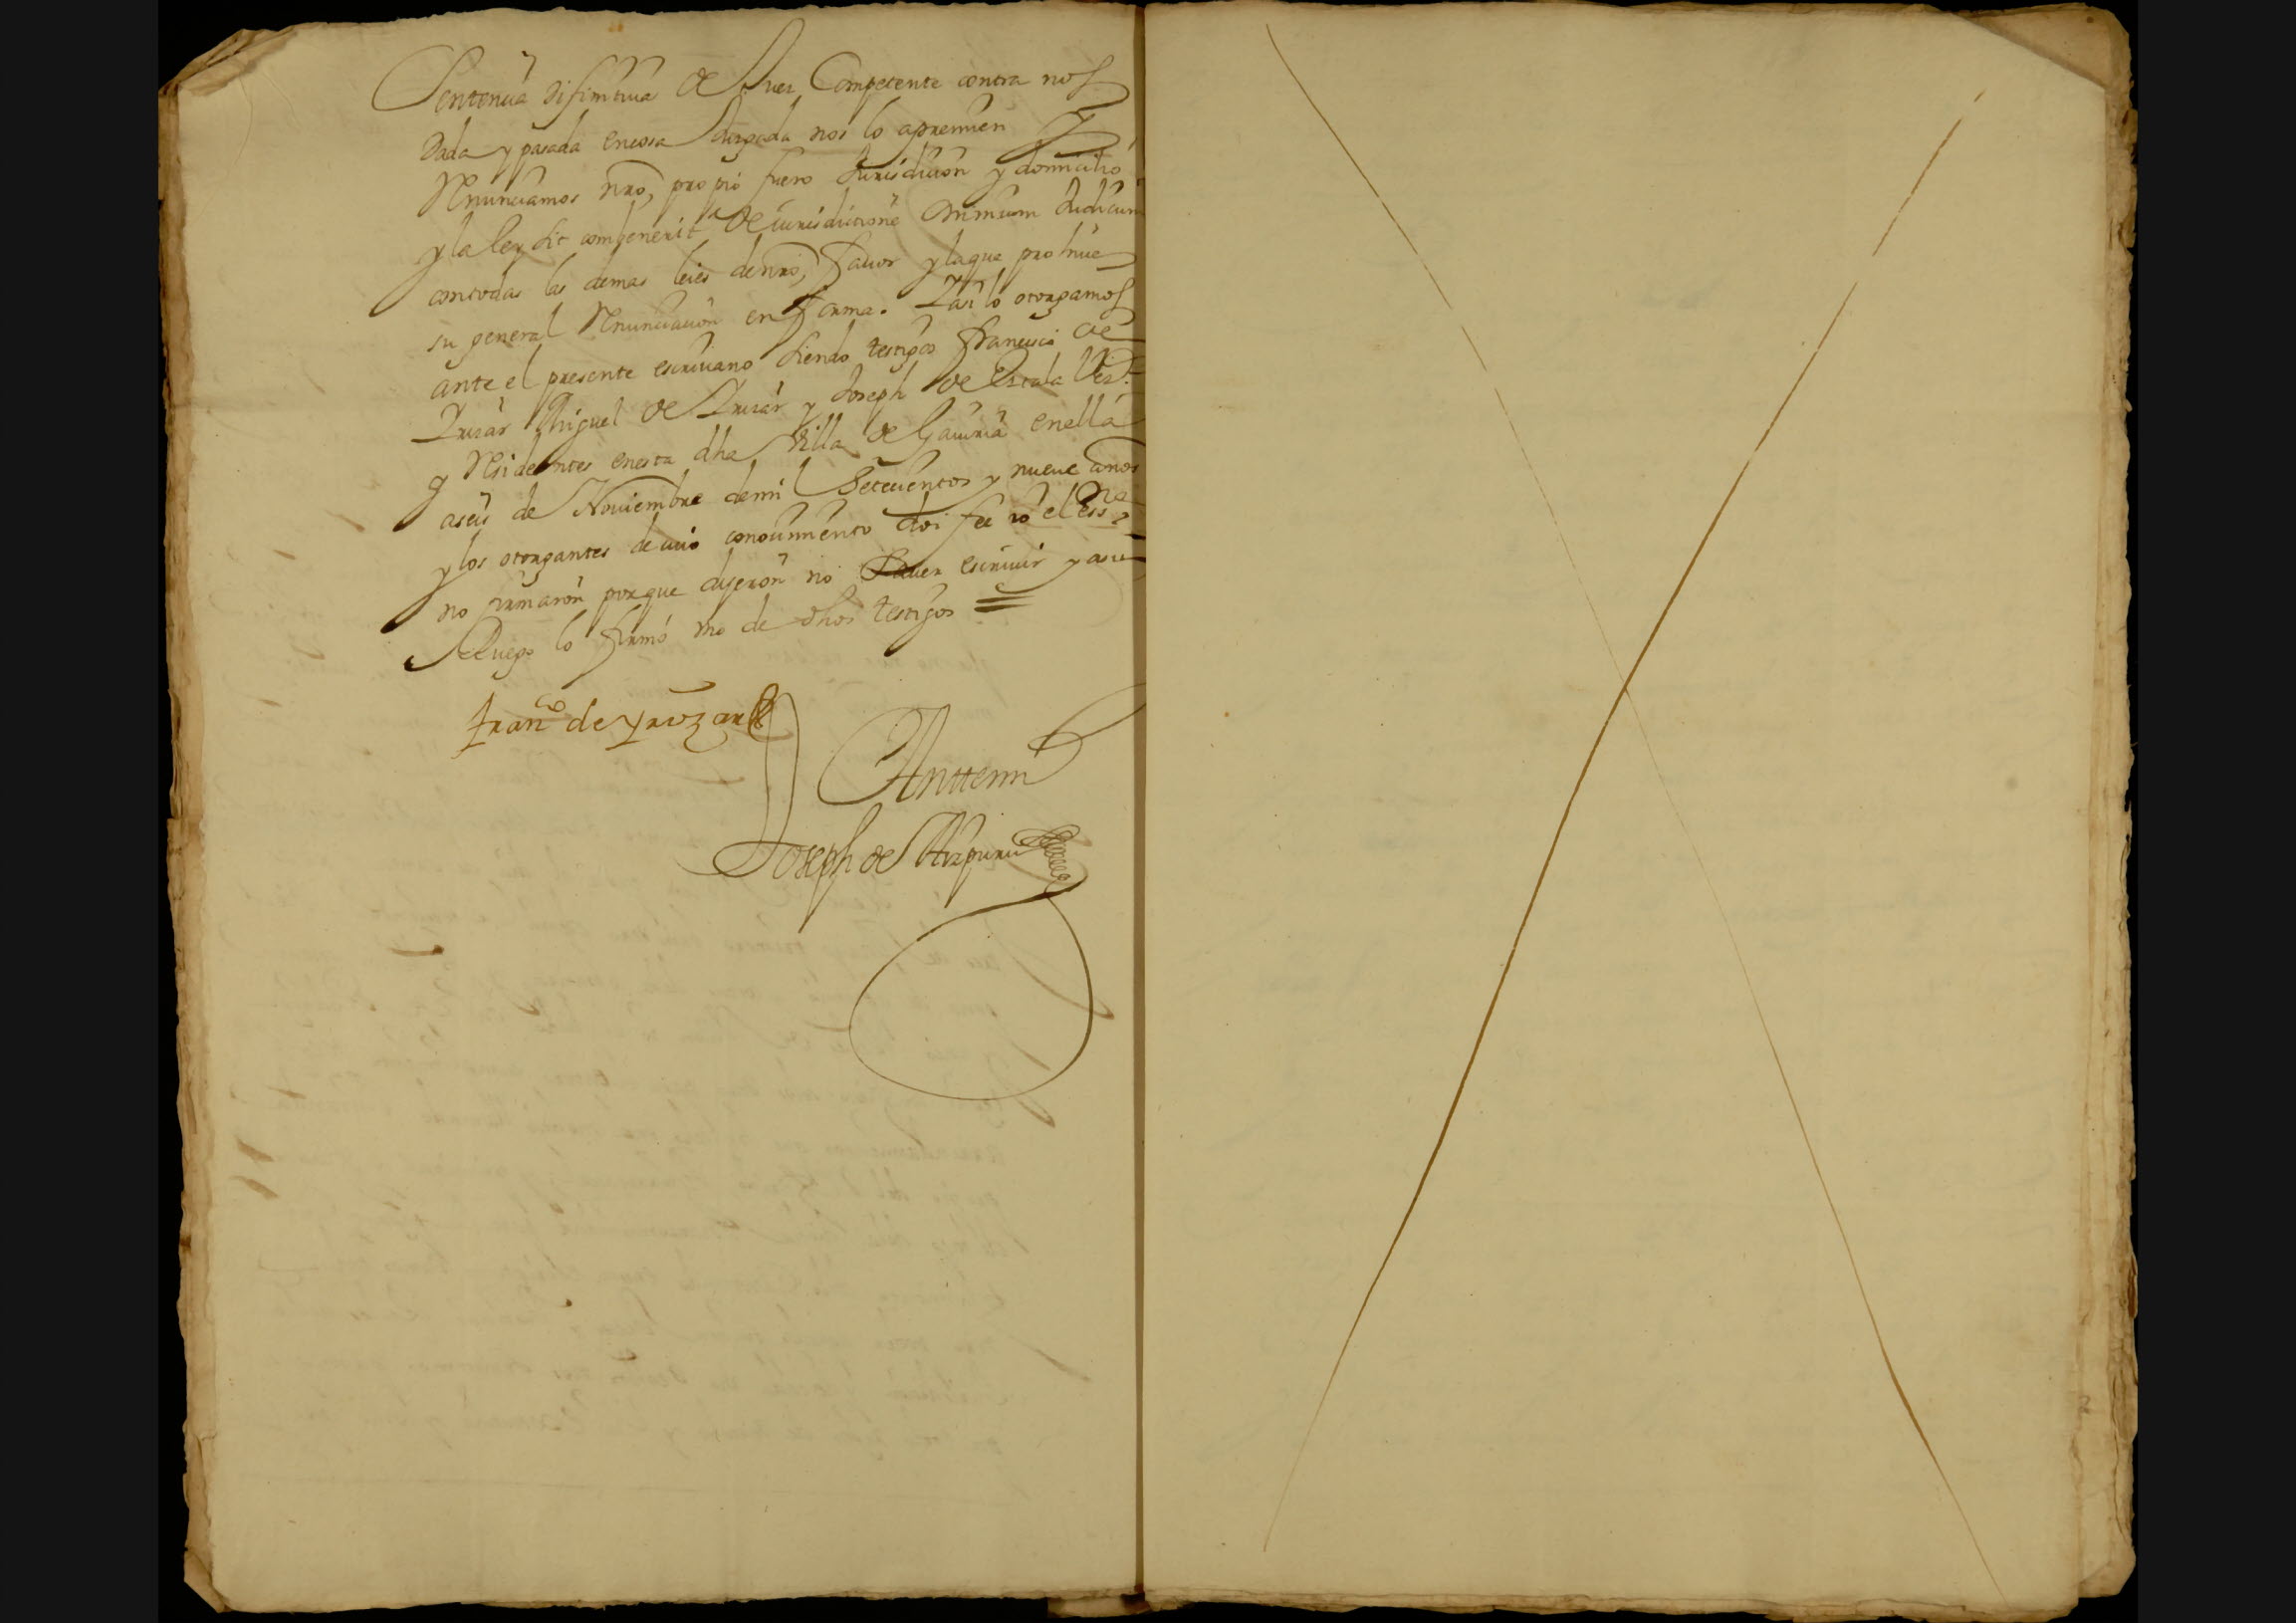 Sentencia difinitiua de Juez Competente contra nos
dada y pasada encosa Juzgada nos lo apremien y
Renunciamos nro, propio fuero Jurisdicion y domicilio
y la ley sit combenerit de iurisdictione omnium Judicum
contodas las demas leies denro, fauor y la que prohiue
su general Renunciacion en forma. Y asi lo otorgamos
ante el presente escriuano siendo testigos Francisco de
Yruzar Miguel de Yruzar y Joseph de Vez.s
y Residentes enesta dha Villa de Gauiria enella
aseis de Nouiembre demil Setecientos y nueue años
y los otorgantes de cuio conocimiento doi fee yo el essno
no firmaron porque dijeron no sauer escriuir y asu
Ruego lo firmó vno de dhos testigos =
franco de yruozar
Anttemi
Joseph de Aizpuru